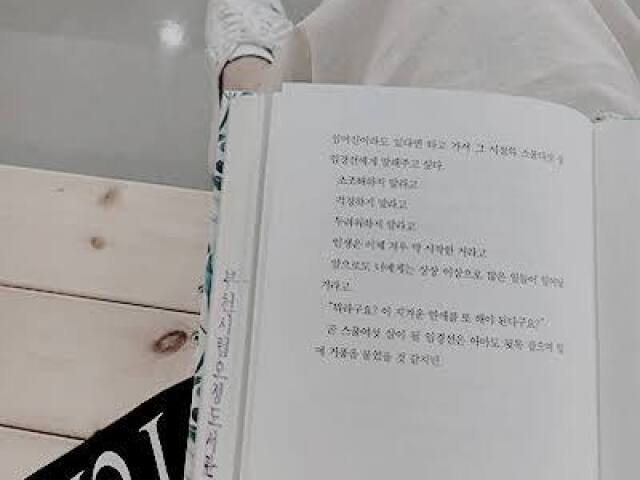 임머신이라도 있다면 타고 가서 그 시절의 스물다섯 살
임경선에게 말해주고 싶다.
초조해하지 말라고
걱정하지 말라고
두려워하지 말라고
인생은 이제 겨우 막 시작한 거라고
앞으로도 너에게는 상상 이상으로 많은 일들이 일어날
거라고.
"뭐라구요? 이 지겨운 연애를 또 해야 된다구요?"
곧 스물여섯 살이 될 임경선은 아마도 뒷목 잡으며 입
에 거품을 물었을 것 같지만.